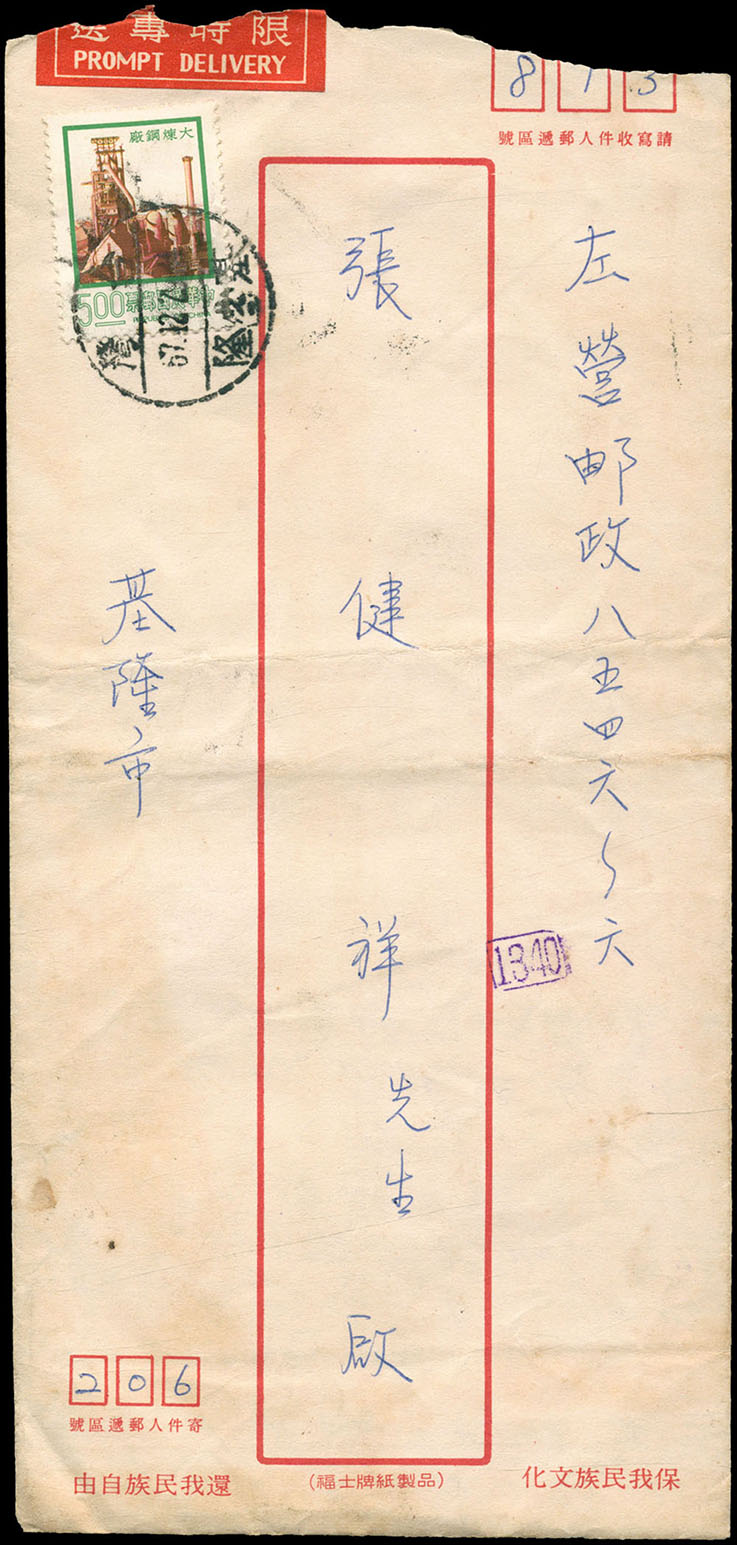 限時專送
PROMPT DELIVERY
813
請寫收件人郵遞區號
大煉鋼廠
5.00
中華民國郵票
基隆
67.12.2
臺灣
左營郵政八五四六~六
張健祥先生啟
1340
基隆市
206
寄件人郵遞區號
保我民族文化
(福士牌紙製品)
還我民族自由